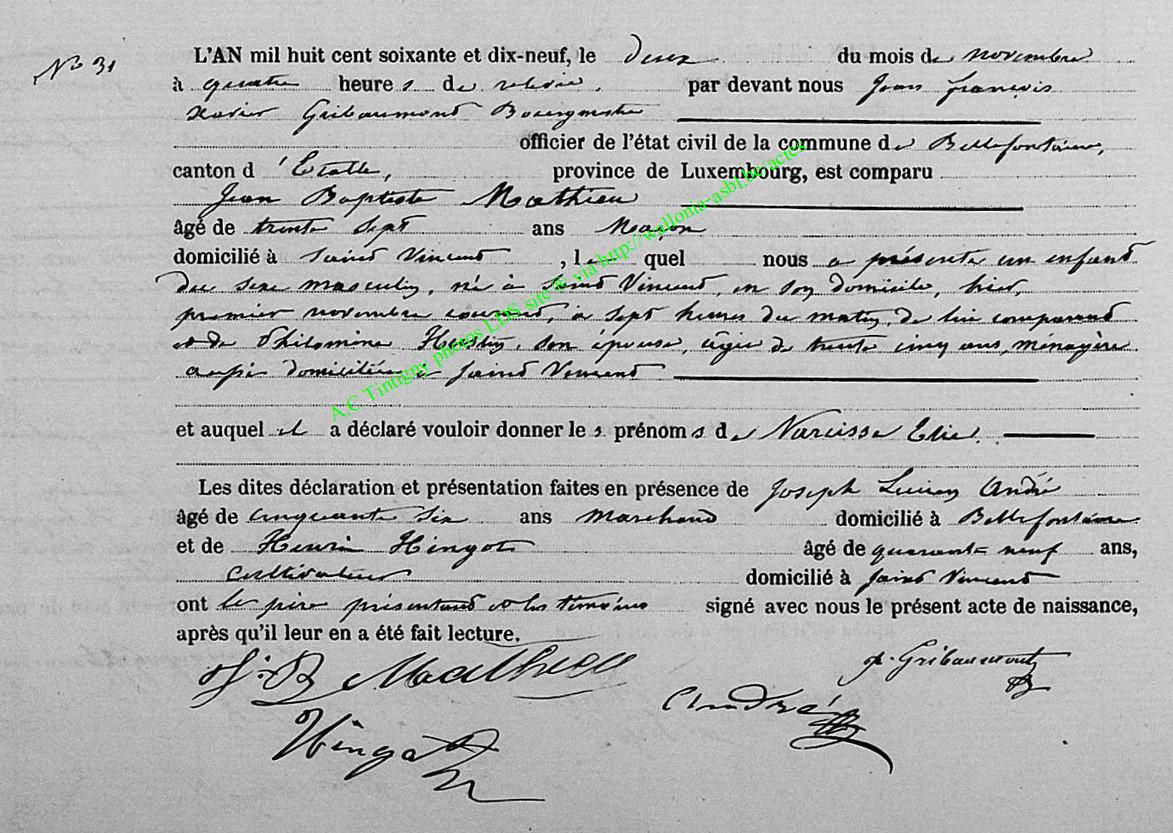 No 31
L'AN mil huit cent soixante et dix-neuf, le deux du mois de novembre
à quatre heures de relevée, par devant nous Jean François
Xavier Gribaumont Bourgmestre
officier de l'état civil de la commune de Bellefontaine,
canton d'Etalle, province de Luxembourg, est comparu
Jean Baptiste Mathieu
âgé de trente sept ans Maçon
domicilié à Saint Vincent, lequel nous a présenté un enfant
du sexe masculin, né à Saint Vincent, en son domicile, hier,
premier novembre courant, à sept heures du matin, de lui comparant
et de Philomène Hustin, son épouse, âgée de trente cinq ans, ménagère
aussi domiciliée à Saint Vincent
et auquel il a déclaré vouloir donner les prénoms de Narcisse Elie.
Les dites déclaration et présentation faites en présence de Joseph Lucien André
âgé de cinquante six ans marchand domicilié à Bellefontaine
et de Henri Hingot âgé de quarante neuf ans,
cultivateur domicilié à Saint Vincent
ont le père présentant et les témoins signé avec nous le présent acte de naissance,
après qu'il leur en a été fait lecture.
J. B Mathieu
Gribaumont
André
Hingot
A.C Tintigny photos LDS site & via http://wallonia-asbl.be/actes